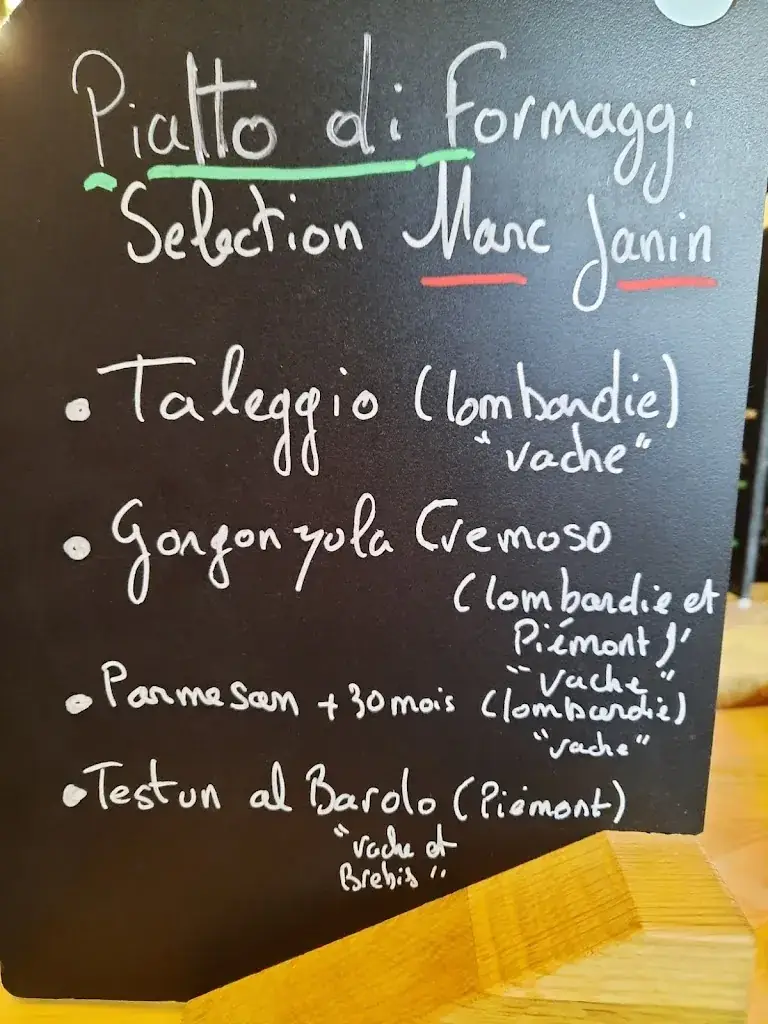 Piatto di Formaggi
Selection Marc Janin
• Taleggio (lombardie)
"vache"
• Gorgonzola Cremoso
(lombardie et
Piémont)
"vache"
• Parmesan + 30 mois (lombardie)
"vache"
• Testun al Barolo (Piémont)
"vache et
Brebis"